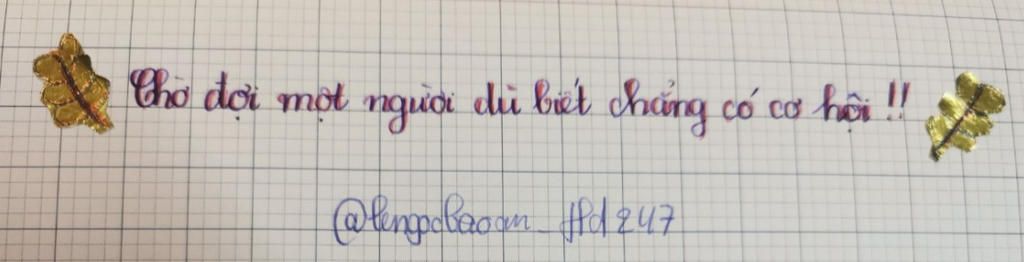 Chờ đợi một người dù biết chẳng có cơ hội !!